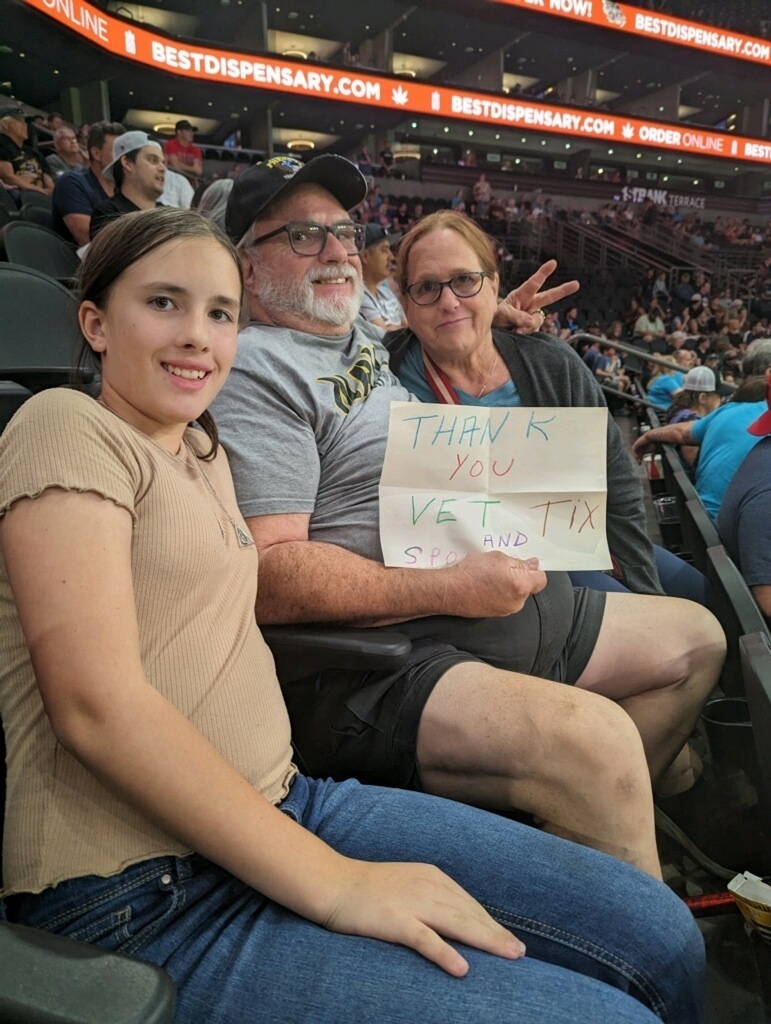 ONLINE BESTDISPENSARY.COM BESTDISPENSARY.COM ORDER ONLINE
NOW! BESTDISPENSARY.COM
TERRACE
THANK
YOU
VET TIX
AND